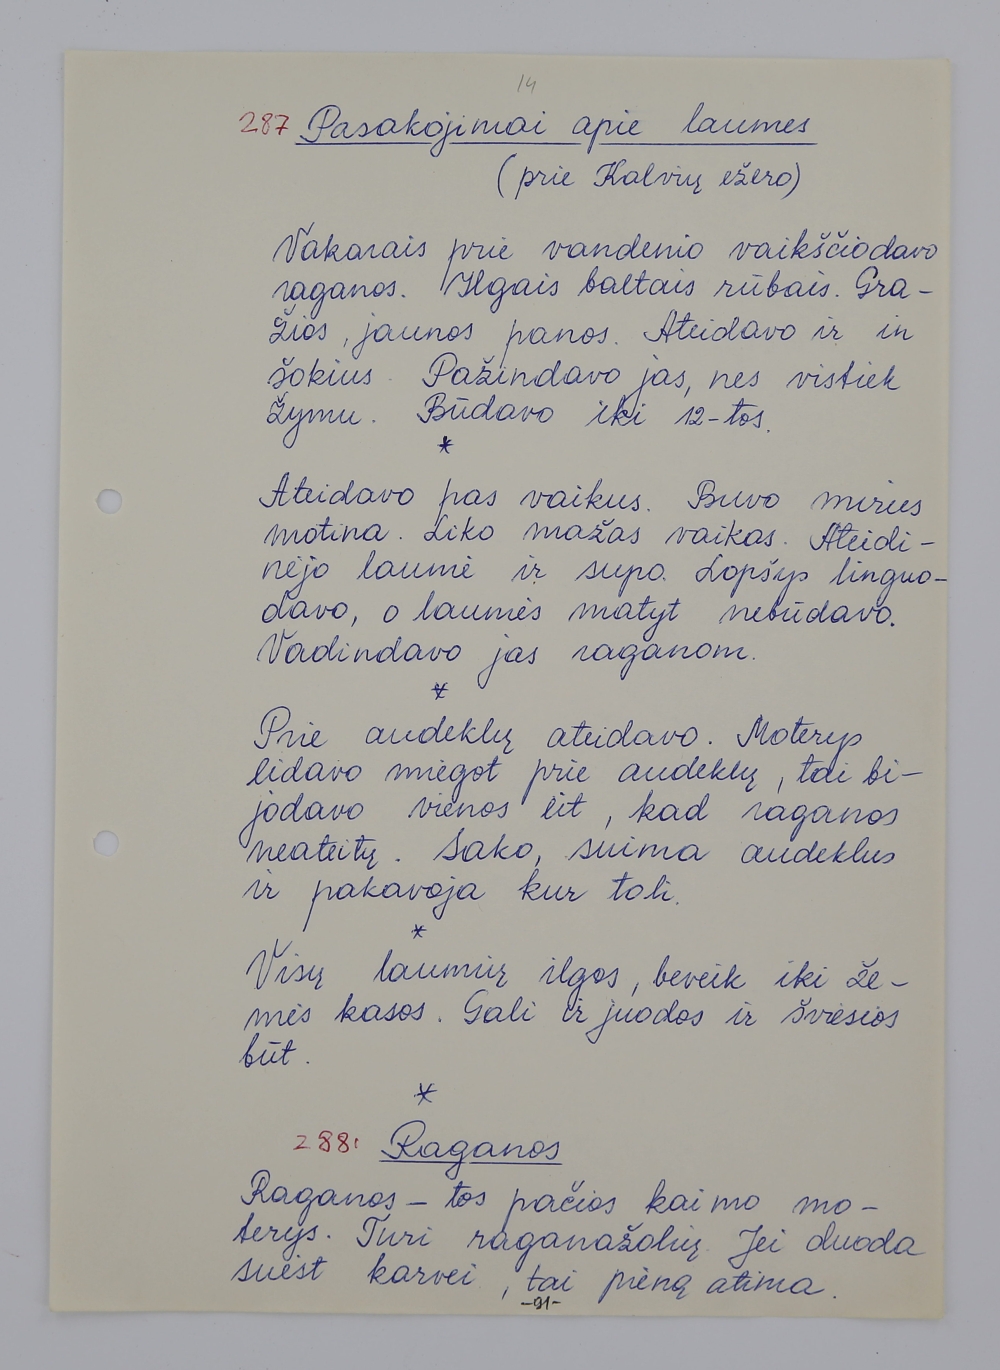 14
287 Pasakojimai apie laumes
(prie Kalvių ežero)
Vakarais prie vandenio vaikščiodavo
raganos. Ilgais baltais rūbais. Gra-
žios, jaunos panos. Ateidavo ir in
šokius. Pažindavo jas, nes vistiek
žymu. Būdavo iki 12-tos.
*
Ateidavo pas vaikus. Buvo mirus
motina. Liko mažas vaikas. Ateidi-
nėjo laumė ir supo. Lopšys linguo-
davo, o laumės matyt nebūdavo.
Vadindavo jas raganom.
*
Prie audeklų ateidavo. Moterys
lidavo miegot prie audeklų, tai bi-
jodavo vienos eit, kad raganos
neateitų. Sako, suima audeklus
ir pakavoja kur toli.
*
Visų laumių ilgos, beveik iki že-
mės kasos. Gali ir juodos ir šviesios
būt.
*
288. Raganos
Raganos – tos pačios kaimo mo-
terys. Turi raganažolių. Jei duoda
suėst karvei, tai pieną atima.
-91-